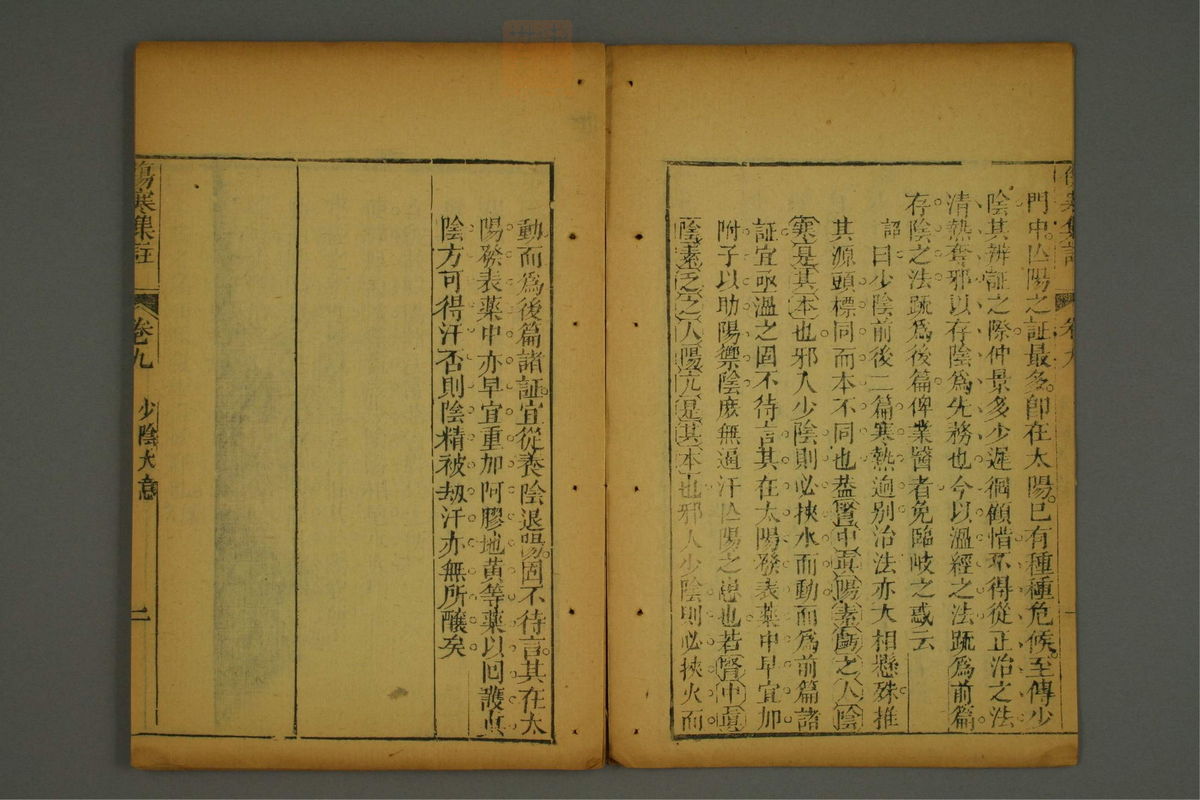 門中亾陽之証最多即在太陽已有種種危候至傳少
陰其辨証之際仲景多少遲徊顧惜不得從正治之法
清熱奪邪以存陰爲先務也今以溫經之法疏爲前篇
存陰之法疏爲後篇俾業醫者免臨岐之惑云
詔曰少陰前後二篇寒熱逈别治法亦大相懸殊推
其源頭標同而本不同也葢腎中眞陽素虧之人陰
寒是其本也邪入少陰則必挾水而動而爲前篇諸
証宜亟溫之固不待言其在太陽發表藥中早宜加
附子以助陽禦陰庶無過汗亾陽之患也若腎中眞
陰素乏之人陽亢是其本也邪入少陰則必挾火而
動而爲後篇諸証宜從養陰退陽固不待言其在太
陽發表藥中亦早宜重加阿膠地黃等藥以囘護眞
陰方可得汗否則陰精被刼汗亦無所釀矣
傷寒集註
卷九
少陰大意
二